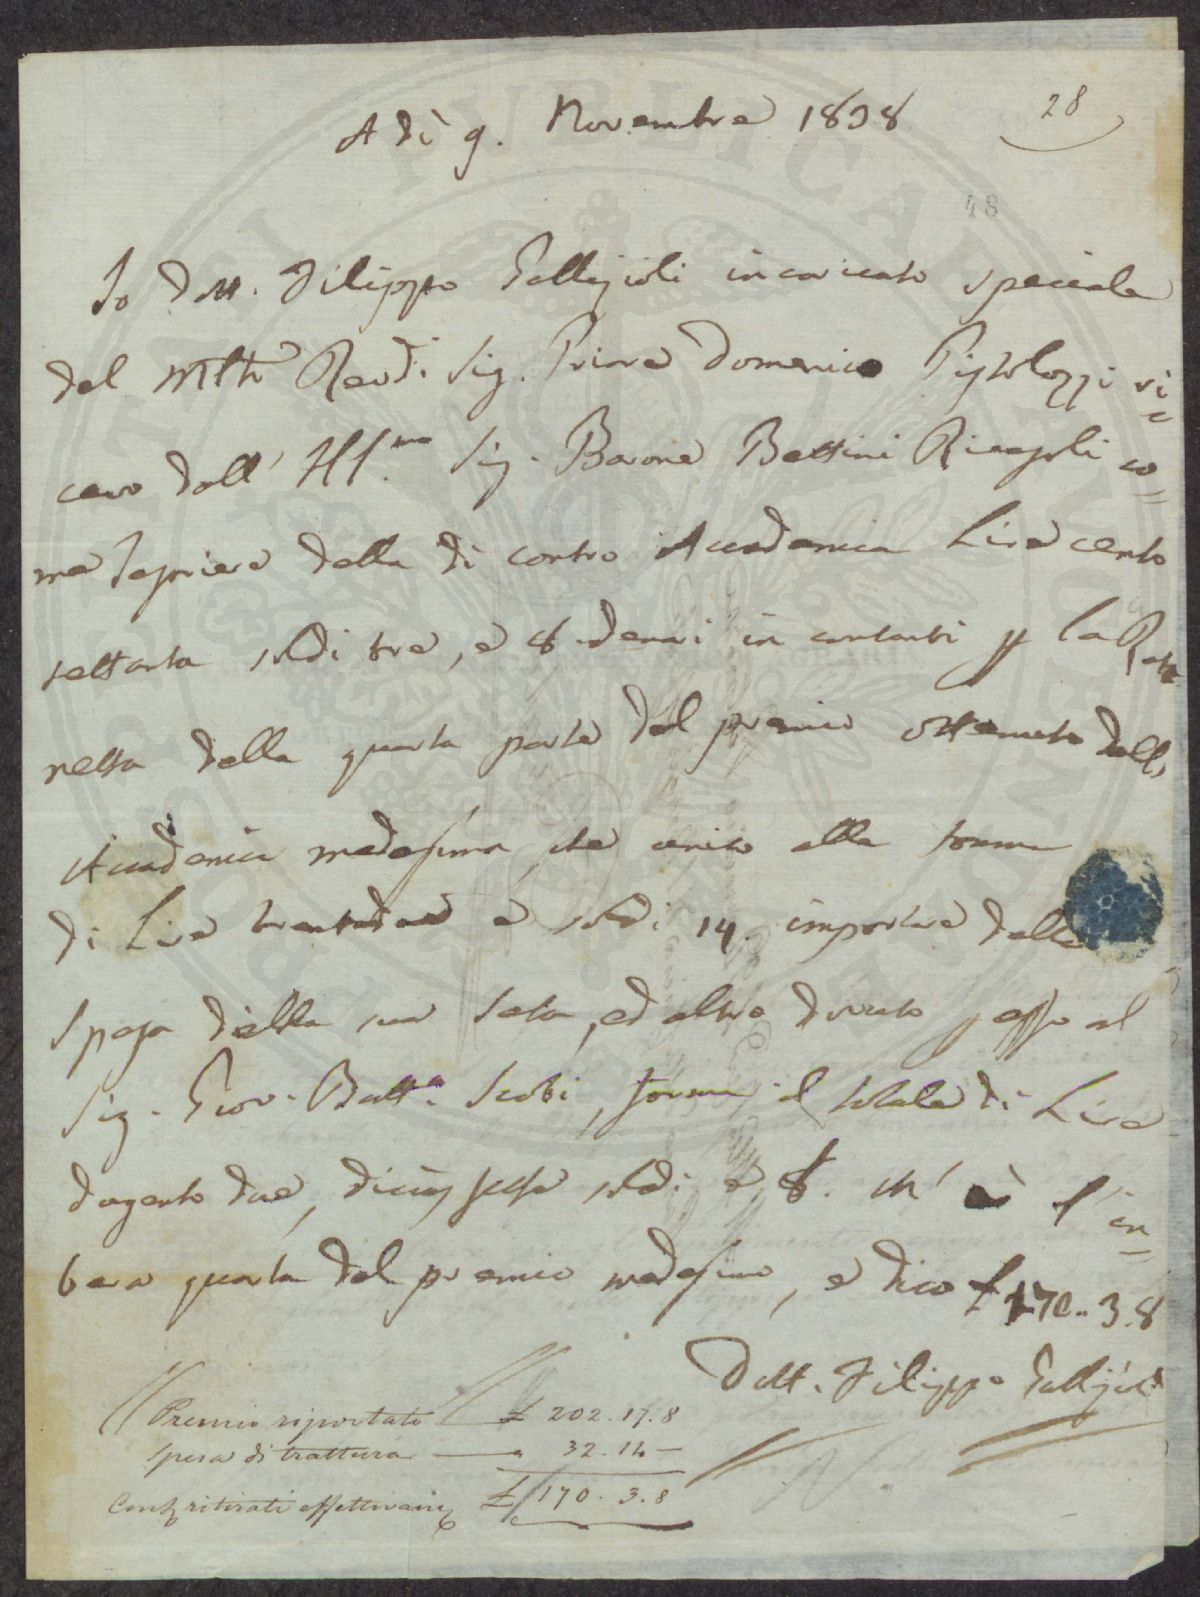 A dì 9. Novembre 1838
28
48
Io Dott. Filippo Gallizioli incaricato speciale
del Mlto Revd. Sig. Priore Domenico Pistolozzi ri=
cevo dall' Ill.mo Sig. Barone Bettini Ricasoli co=
me Tesoriere della di contro Accademia Lire cento
settanta soldi tre, e 8 denari in contanti p la Rata
netta della quarta parte del premio ottenuto dall'
Accademia medesima, che unito alla somma
di Lire trentadue e soldi 14 importare delle
spese della sua seta, ed altro dovuto p esse al
Sig. Giov. Batt.a Scoti, forma il totale di Lire
dugento due, diciassette soldi e 8. ch' è l'in=
tera quarta del premio medesimo, e dico £ 170.. 3. 8
Dott. Filippo Gallizioli
Premio riportato £ 202. 17. 8
spesa di trattura 32. 14 —
ritirati effettivam £ 170. 3. 8